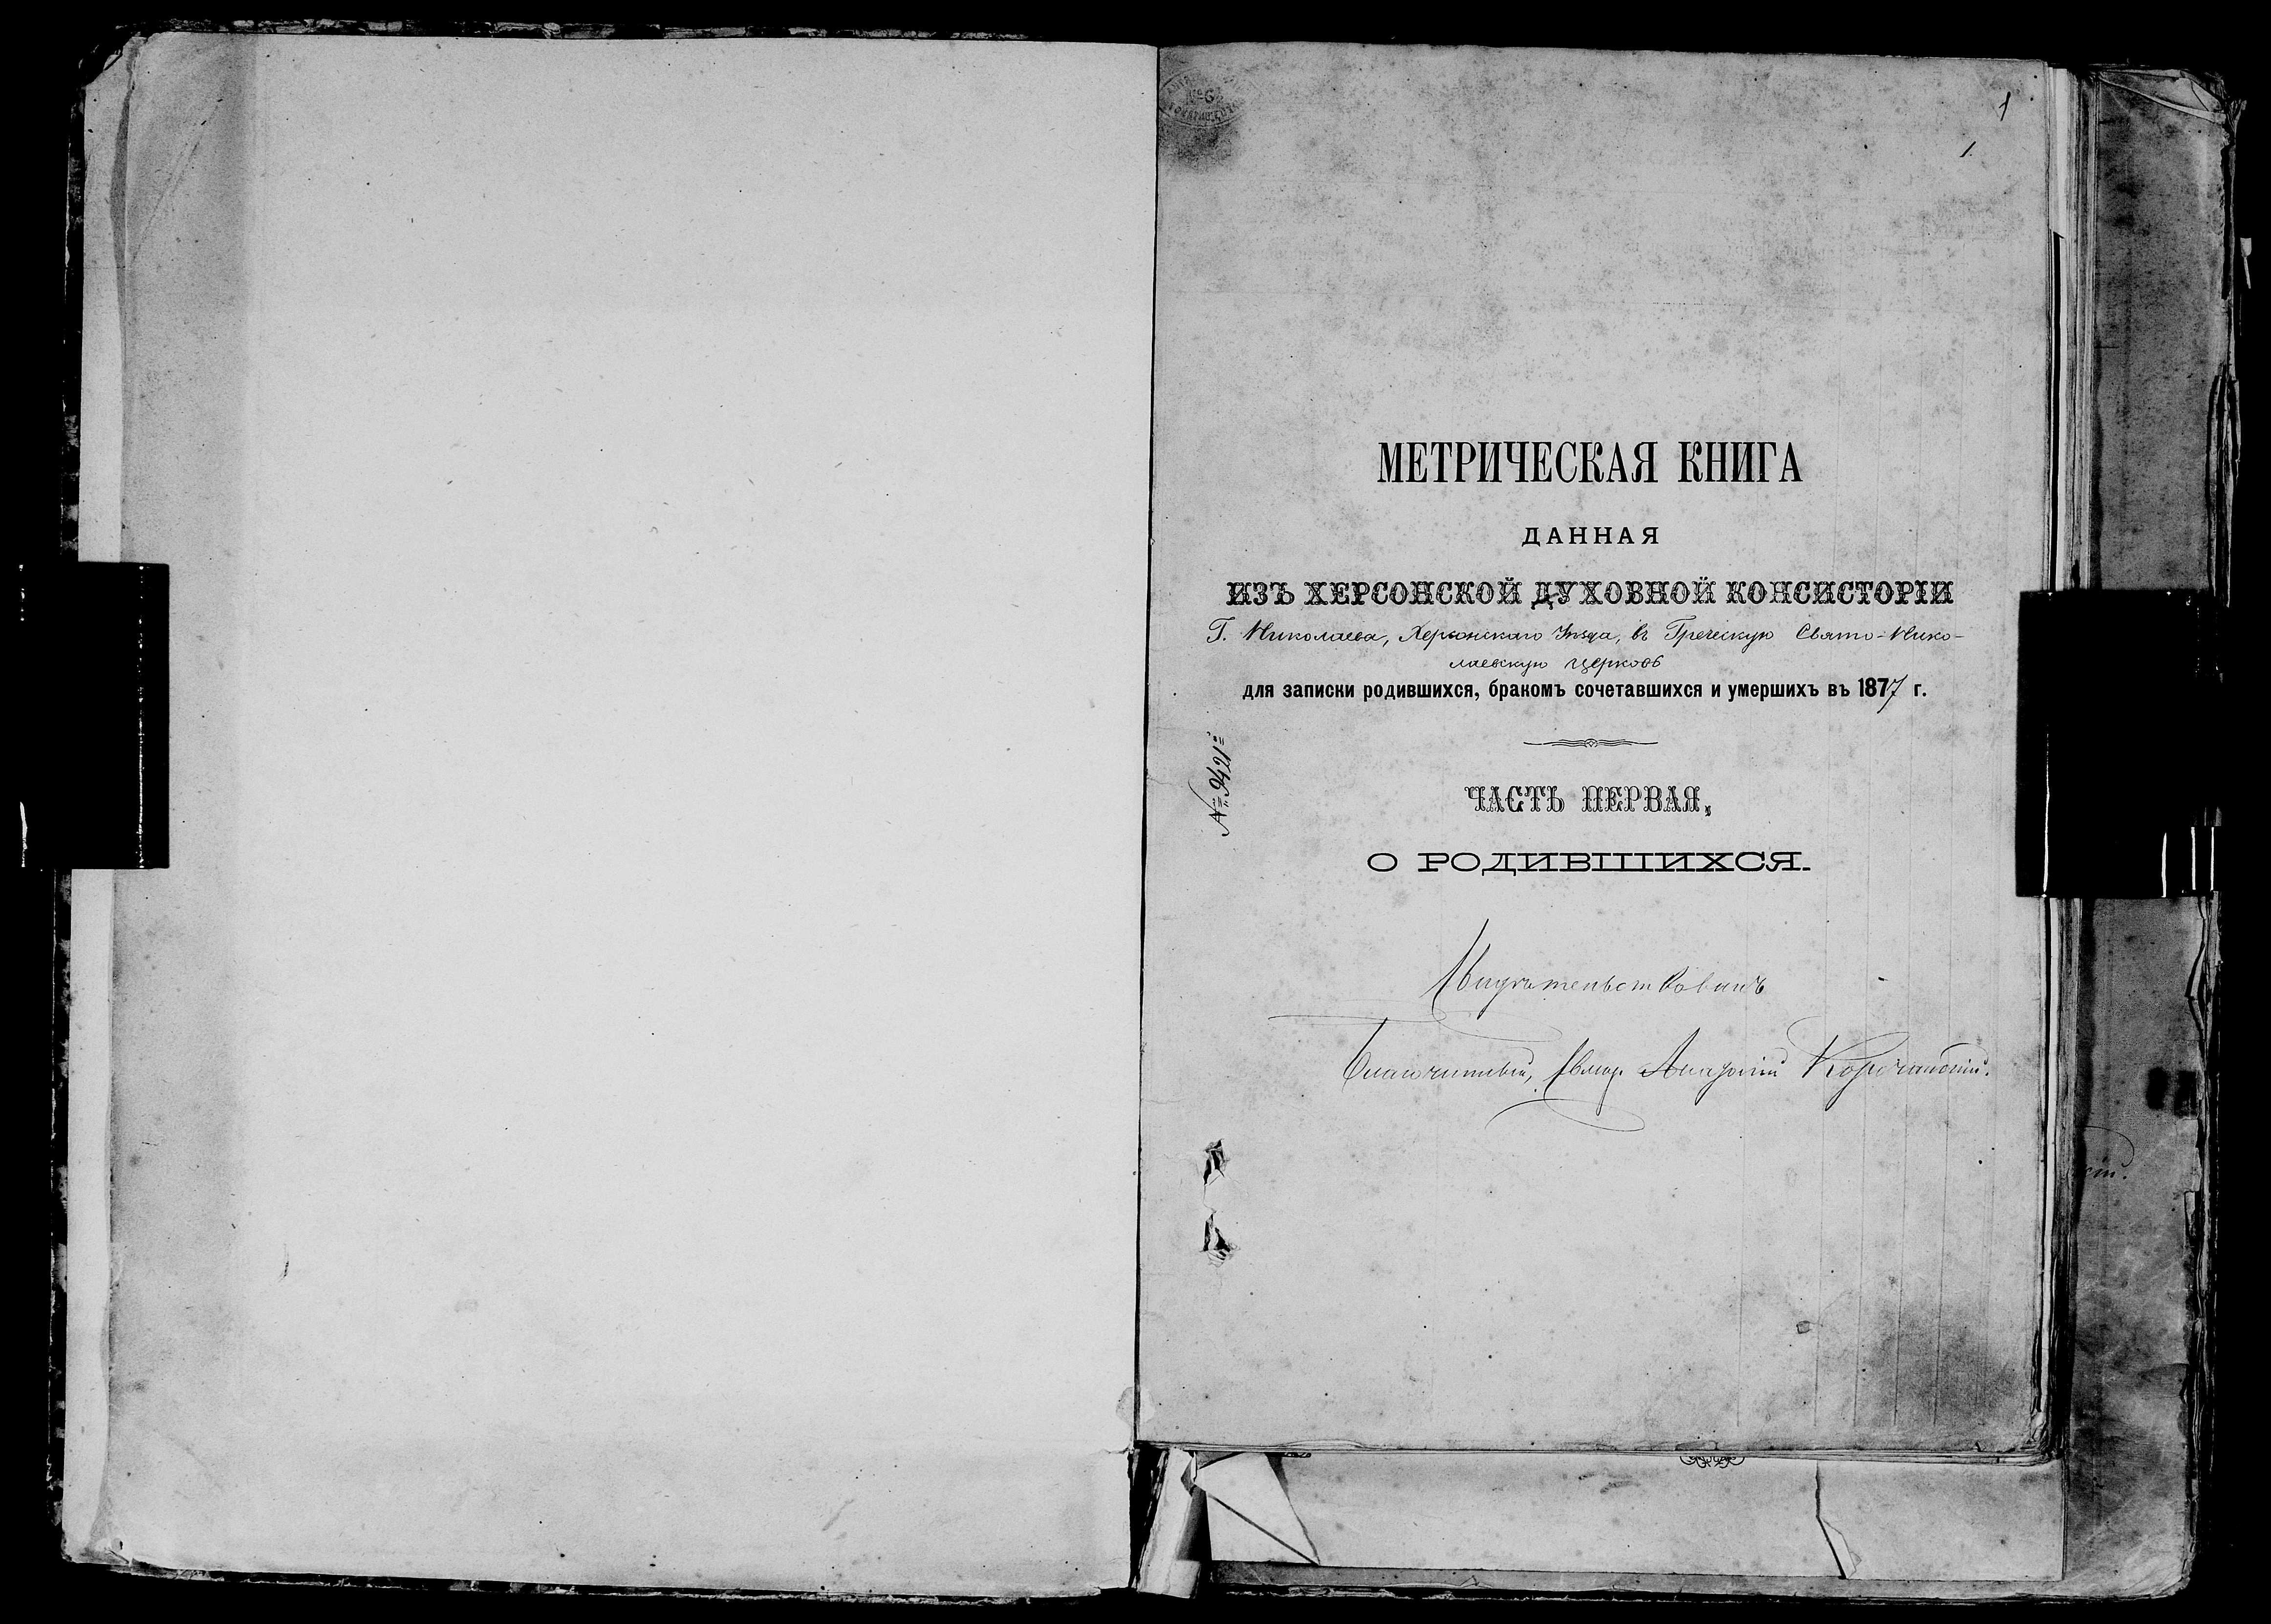 1
1.
МЕТРИЧЕСКАЯ КНИГА
ДАННАЯ
ИЗЪ ХЕРСОНСКОЙ ДУХОВНОЙ КОНСИСТОРІИ
Г. Николаева, Херсонскаго Уѣзда, въ Греческую Свято-Нико-
лаевскую церковь
для записки родившихся, бракомъ сочетавшихся и умершихъ въ 1877 г.
№ 9421
ЧАСТЬ ПЕРВАЯ,
О РОДИВШИХСЯ.
Свидѣтельствовалъ
Благочинный,